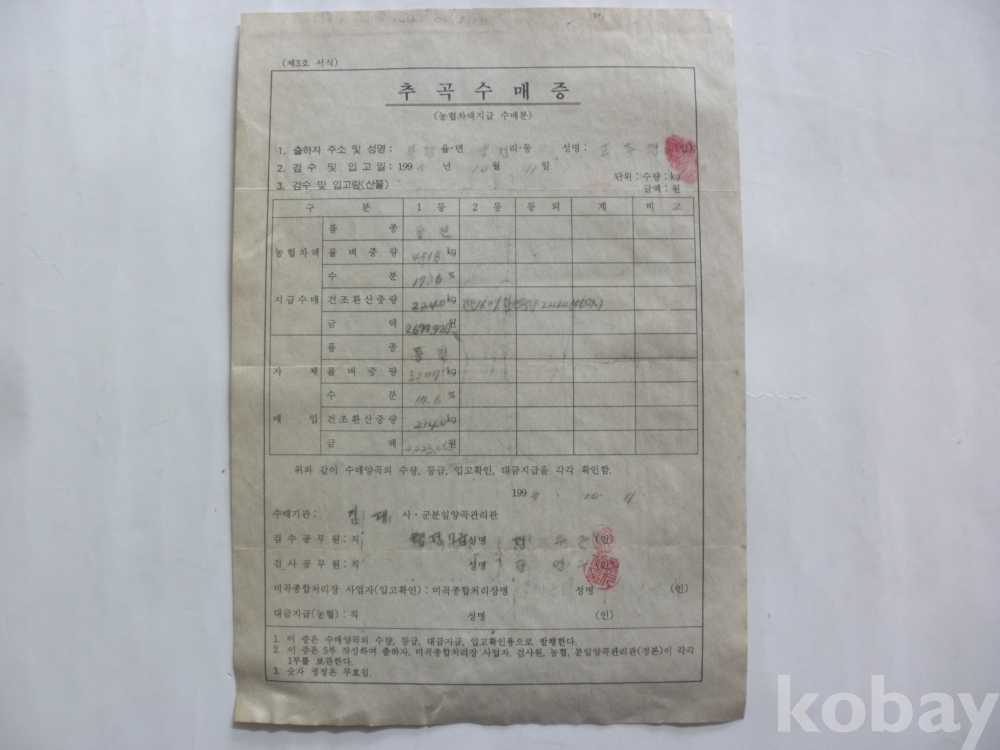 (제3호 서식)
추 곡 수 매 증
(농협차액지급 수매분)
1. 출하자 주소 및 성명 : 읍·면 리·동 성명 : (인)
2. 검 수 및 입 고 일 : 199 년 10 월 11 일
단위 : 수량 : kg
3. 검수 및 입고량(산물) 금액 : 원
구 분 1 등 2 등 등 외 계 비 고
품 종
농협차액 물 벼 중 량 4518 kg
수 분 17.6 %
지급수매 건조환산중량 2240 kg
금 액 원
품 종
자 체 물 벼 중 량 kg
수 분 17.6 %
매 입 건조환산중량 2140 kg
금 액 원
위와 같이 수매양곡의 수량, 등급, 입고확인, 대금지급을 각각 확인함.
199 . 10 . 11 .
수매기관 : 김 제 시·군분임양곡관리관
검 수 공 무 원 : 직 성명 (인)
검 사 공 무 원 : 직 성명 (인)
미곡종합처리장 사업자(입고확인) : 미곡종합처리장명 성명 (인)
대금지급(농협) : 직 성명 (인)
1. 이 증은 수매양곡의 수량, 등급, 대금지급, 입고확인용으로 발행한다.
2. 이 증은 5부 작성하여 출하자, 미곡종합처리장 사업자, 검사원, 농협, 분임양곡관리관(정본)이 각각
1부를 보관한다.
3. 숫자 정정은 무효임.
kobay